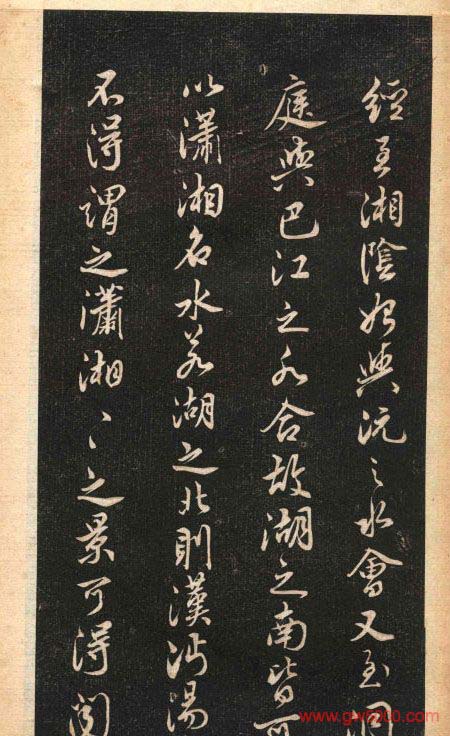 經至湘陰始與沅之水會又至洞
庭與巴江之水合故湖之南皆可
以瀟湘名水若湖之北則漢沔湯
不得謂之瀟湘〻之景可得聞